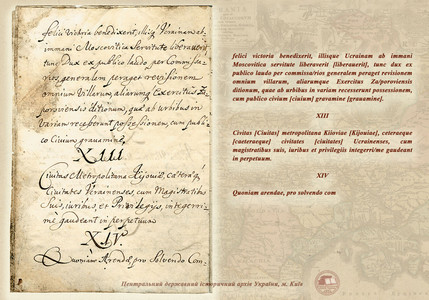 felici victoria benedixerit, illisq Ucrainam ab
immani Moscovitico servitute liberaverit
tunc Dux ex publico laudo, per Commis-
sarios generalem peraget revisionem
omnium villarum, aliarumq Exercitus Za-
poroviensis ditionum, quae ab urbibus in
variam recesserunt possessionem, cum publi-
co Civium gravamine,
XIII
Civitas Metropolitana Kijoviae, caeteraeq
Civitates Ucrainenses, cum Magistratibus
Suis, iuribus, et Privilegijs, integerri-
me gaudeant in perpetuum
XIV
Quoniam Arendae, pro Solvendo Com-
felici victoria benedixerit, illisque Ucrainam ab immani
Moscovitico servitute liberaverit [liberauerit], tunc dux ex
publico laudo per commissa/rios generalem peraget revisionem
omnium villarum, aliarumque Exercitus Za/poroviensis
ditionum, quae ab urbibus in variam recesserunt possessionem,
cum publico civium [ciuium] gravamine [grauamine].
XIII
Civitas [Ciuitas] metropolitana Kiioviae [Kijouiae], ceteraeque
[caeteraeque] civitates [ciuitates] Ucrainenses, cum
magistratibus suis, iuribus et privilegiis integerri/me gaudeant
in perpetuum.
XIV
Quoniam arendae, pro solvendo com
Центральний державний історичний архів України, м. Київ